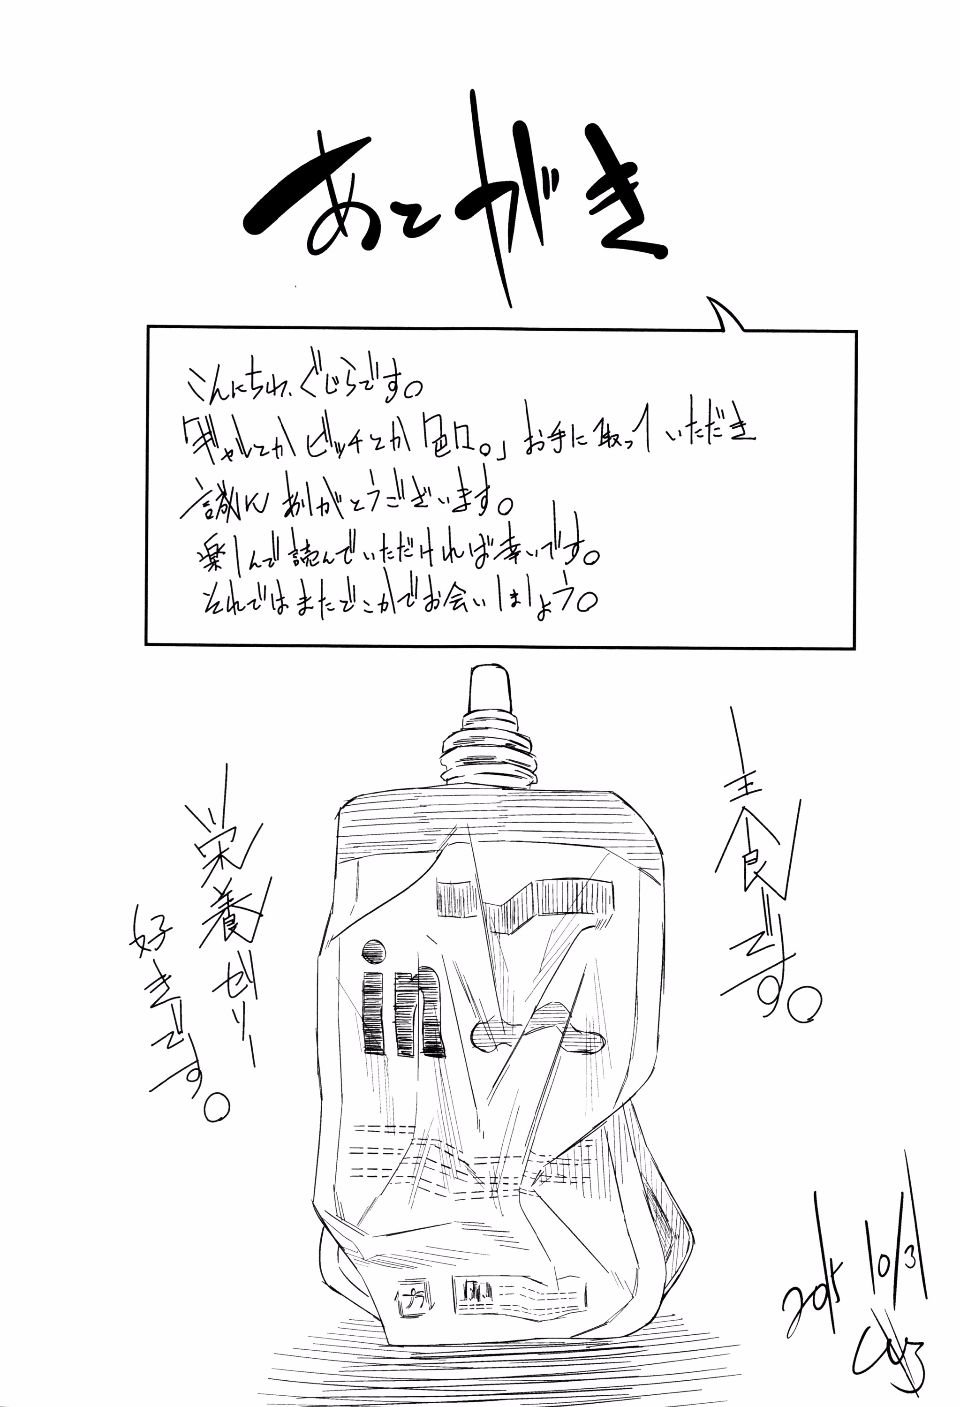 あとがき
こんにちわ、ぐじらです。
「ギャルとかビッチとか色々。」お手に取っていただき
誠にありがとうございます。
楽しんで読んでいただければ幸いです。
それではまたどこかでお会いしましょう。
主食です。
栄養ゼリー
好きです。
in
2015 10/31